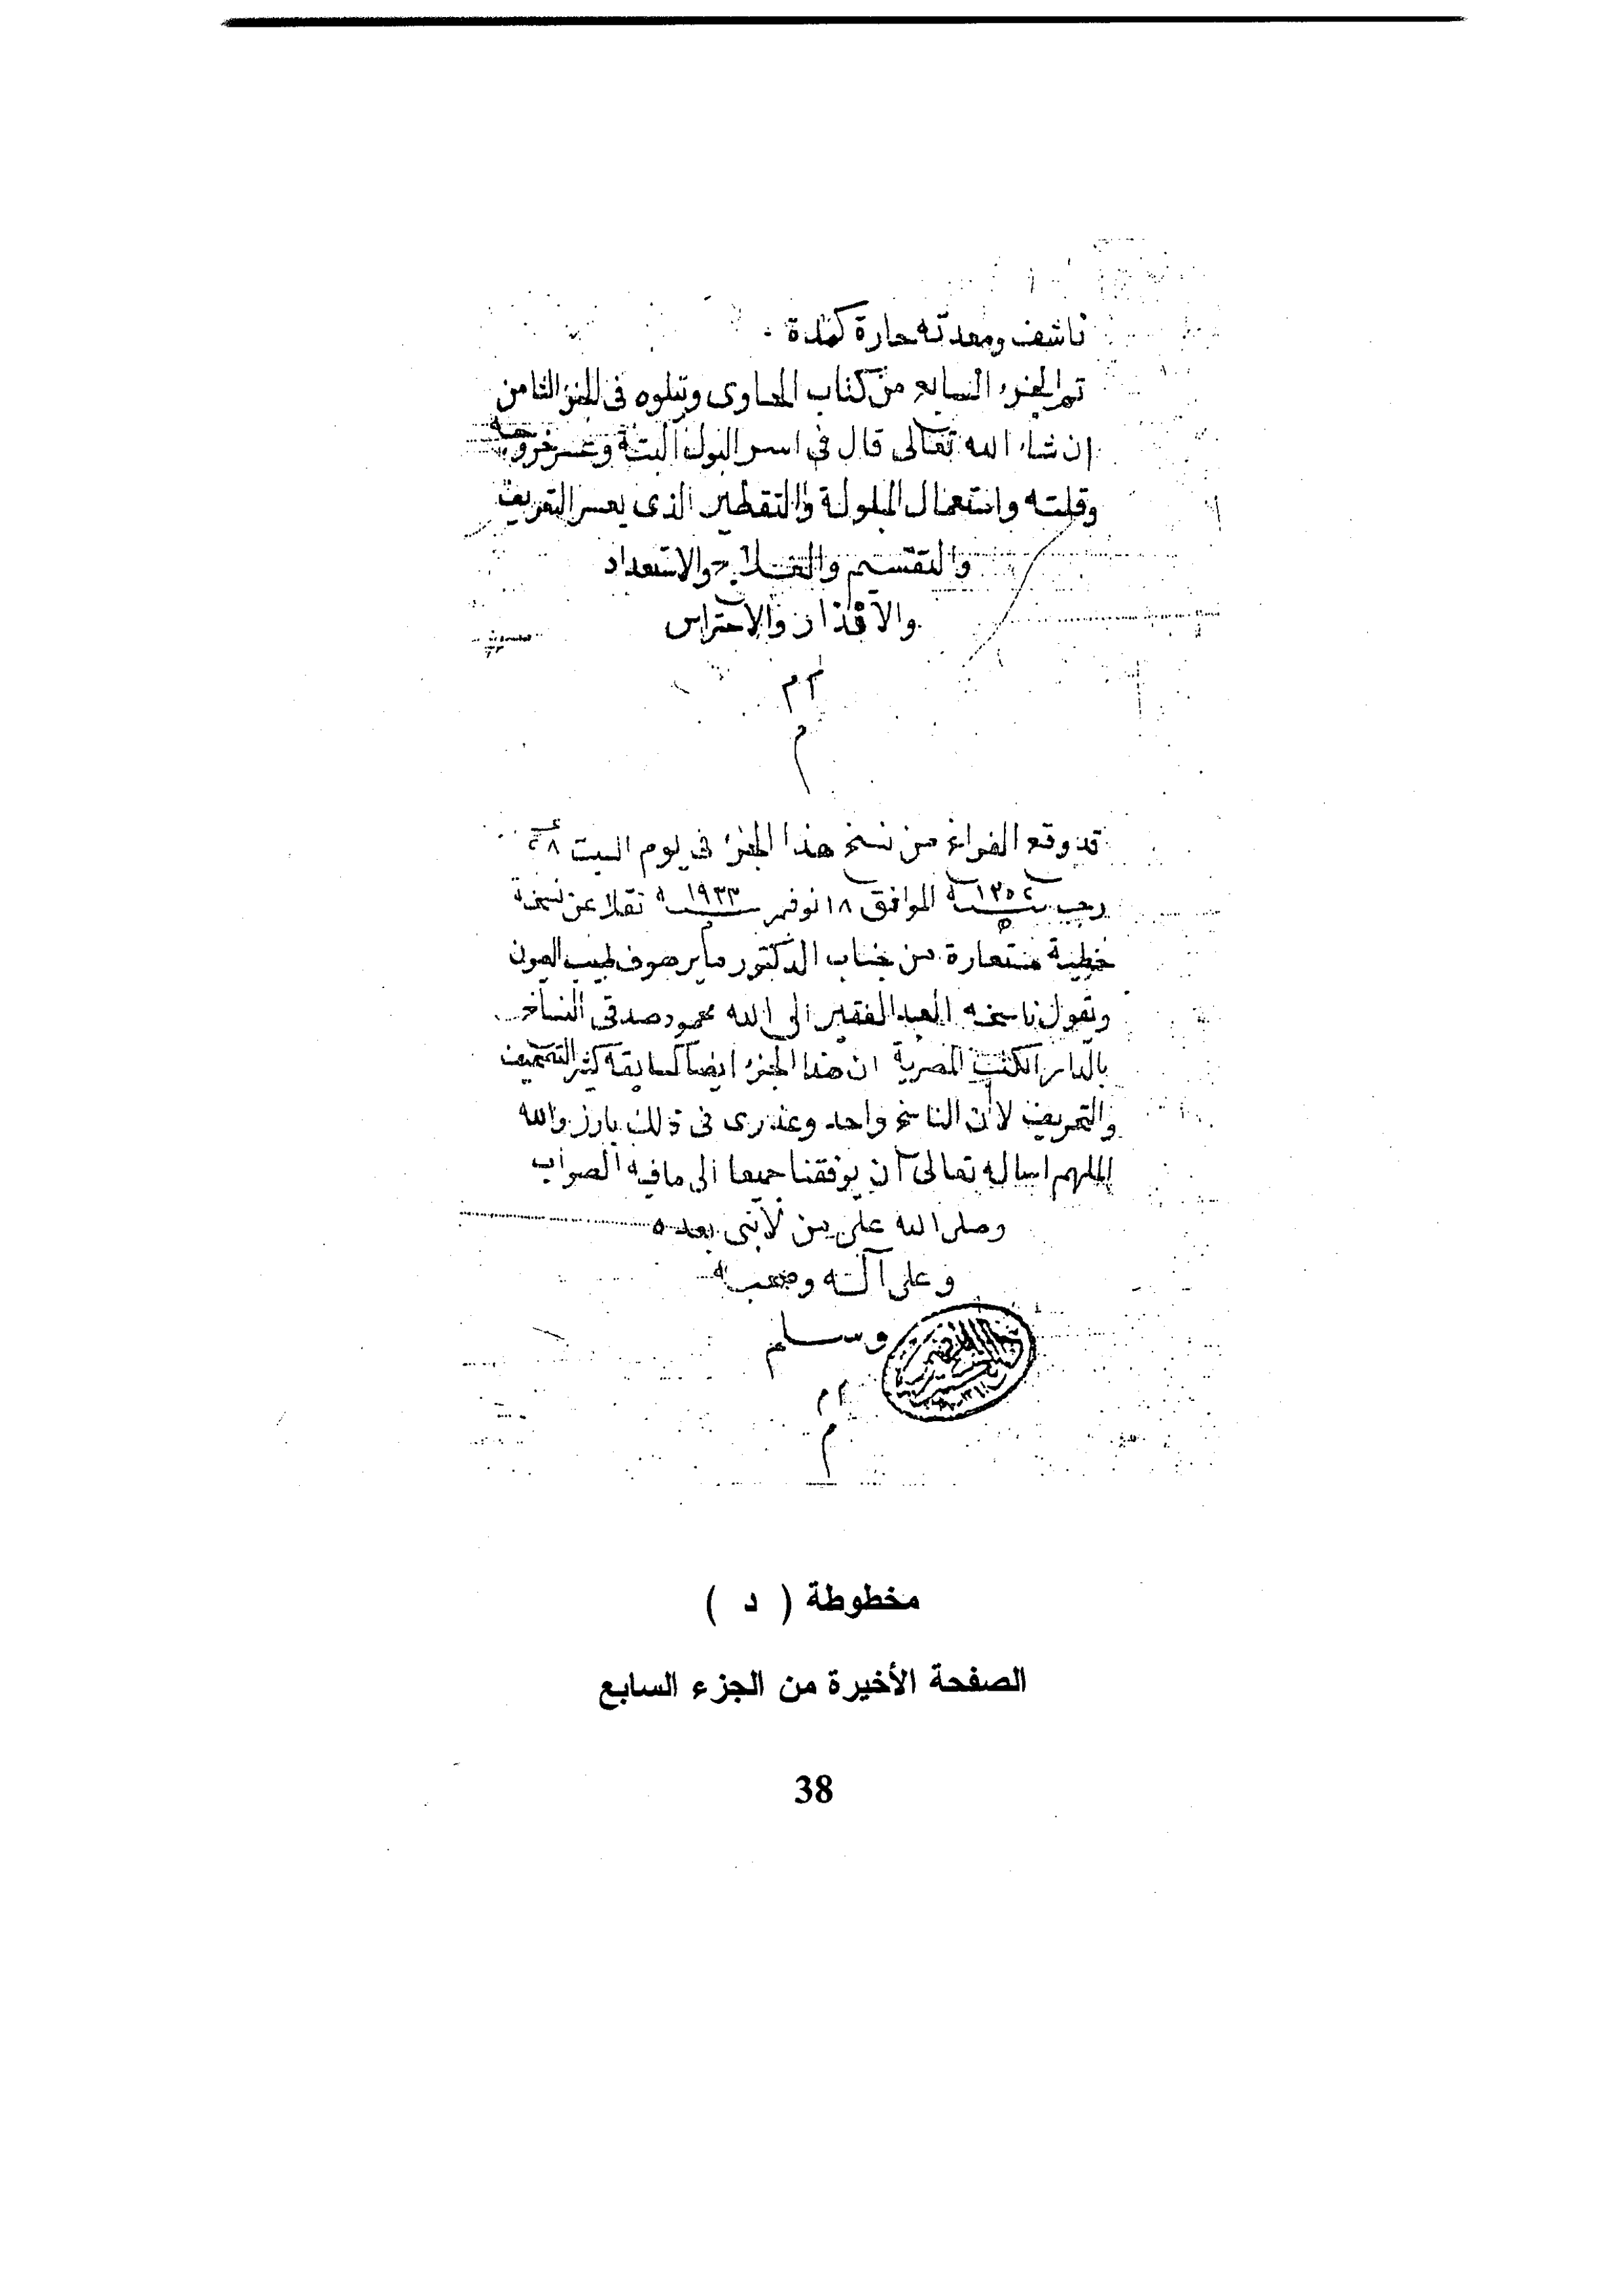 ناشف ومعدته حارة كمدة .
تم الجزء السابع من كتاب الحاوى ويتلوه فى الجزء الثامن
إن شاء الله تعالى قال فى اسر البول البتة وعسر خروجه
وقلته واستعمال المبلولة والتقطير الذى يعسر التعريف
والتقسيم والعلاج والاستعداد
والاقذار والاحتراس
ام
م
قد وقع الفراغ من نسخ هذا الجزء فى يوم السبت
رجب سنة ١٣٥٢ الموافق ١٨ نوفمبر سنة ١٩٣٣ نقلا عن نسخة
خطية مستعارة من جناب الدكتور مايرهوف طبيب العيون
ويقول ناسخه العبد الفقير الى الله محمود صدقى النساخ
بالدار الكتب المصرية ان هذا الجزء ايضا كسابقه كثير التصحيف
والتحريف لأن الناسخ واحد وعذرى فى ذلك بارز والله
الملهم اساله تعالى أن يوفقنا جميعا الى ما فيه الصواب
وصلى الله على من لا نبى بعده
وعلى آله وصحبه
وسلم
ام
م
مخطوطة ( د )
الصفحة الأخيرة من الجزء السابع
38